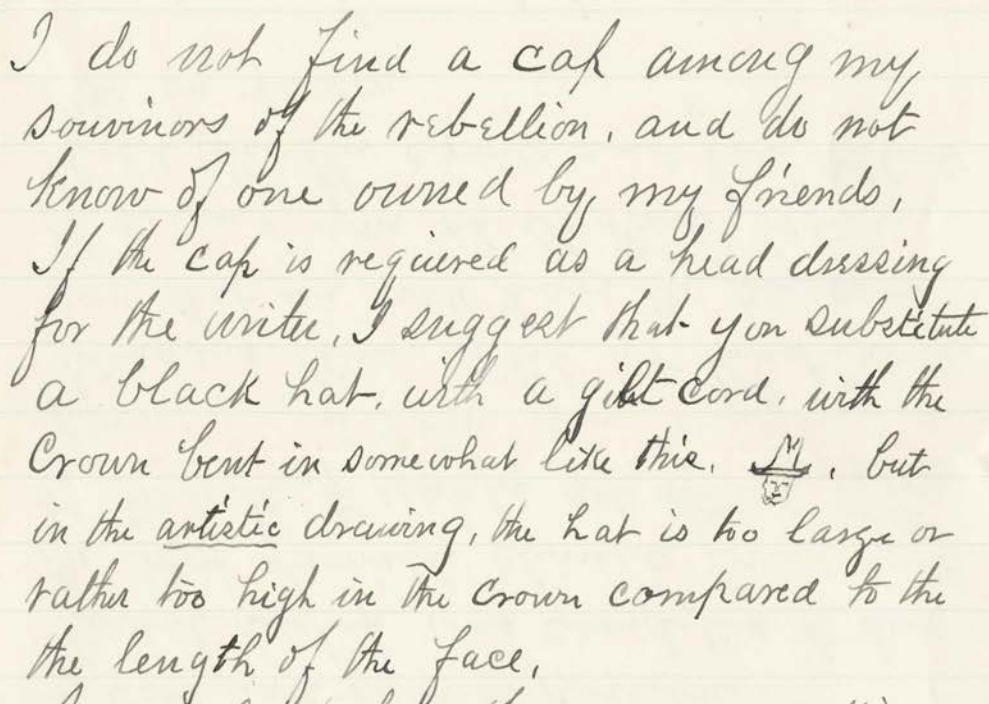 I do not find a cap among my
souvinors of the rebellion, and do not
know of one owned by my friends,
If the cap is requiered as a head dressing
for the writer, I suggest that you substitute
a black hat, with a gilt cord, with the
Crown bent in somewhat like this, . but
in the artistic drawing, the hat is too large or
rather too high in the Crown compared to the
the length of the face,